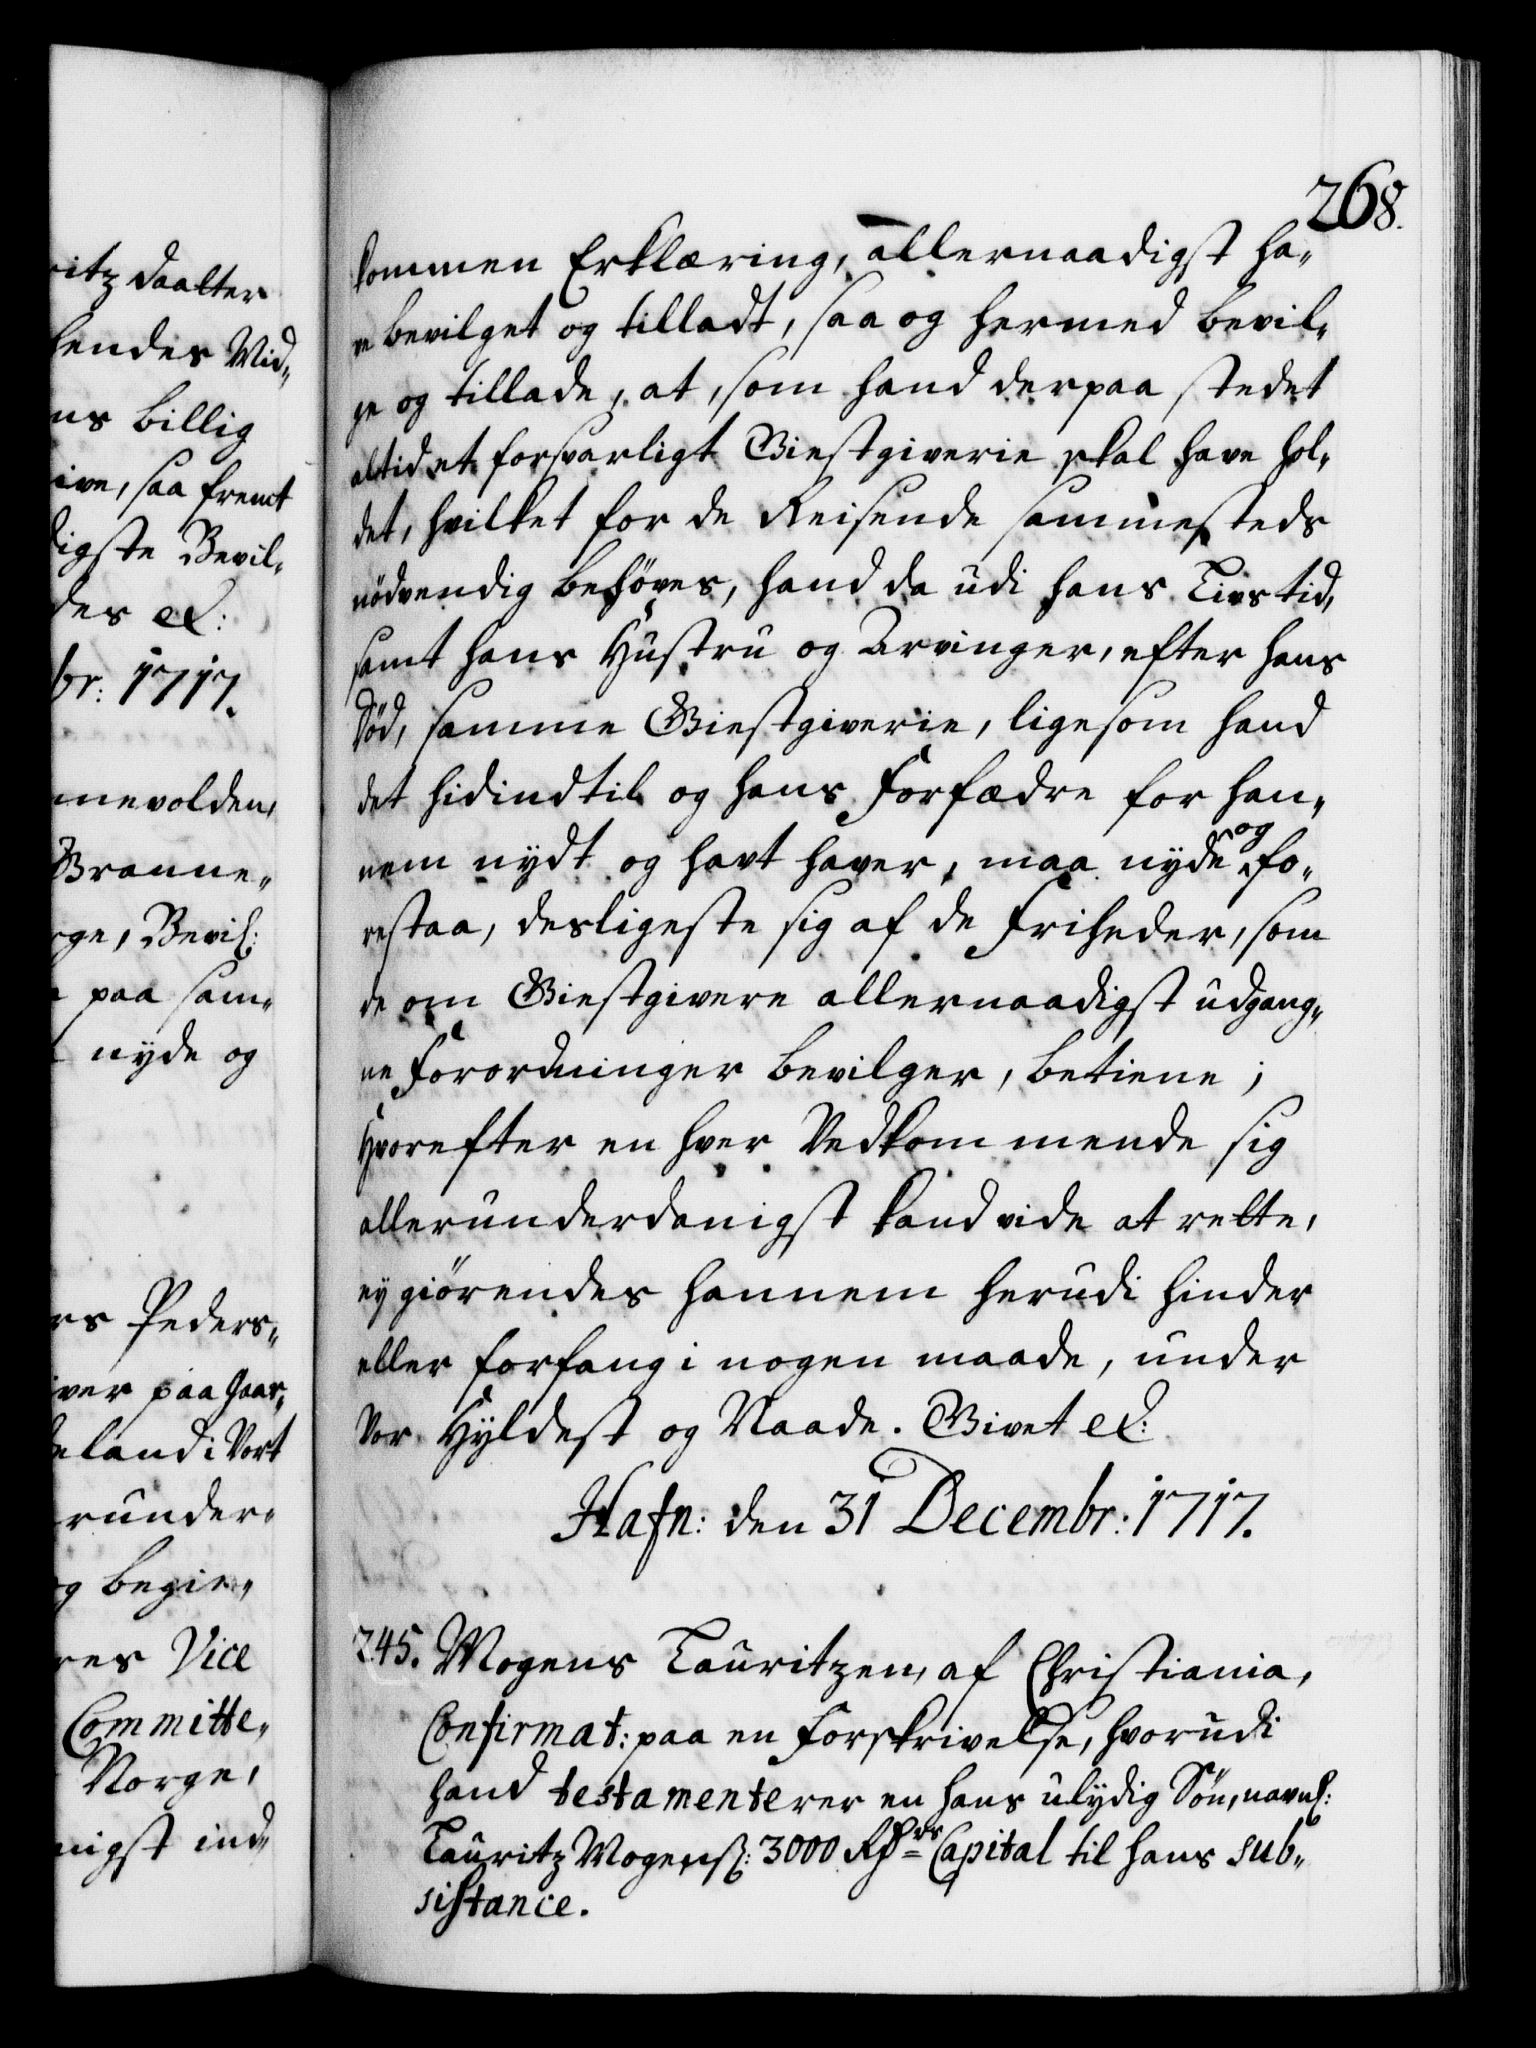 ritz daatter
hendes Mid„
ns billig
ive, saa fremt
digste Bevil„
des etc:
br: 1717.
nnevolden,
Granne„
rge, Bevil:
paa sam„
nyde og
rs Peders„
iver paa Gaar„
eland i Vort
runder„
og begie„
res Vice
Committe„
Norge,
nigst ind„
268.
kommen Erklæring, allernaadigst ha„
ve bevilget og tilladt, saa og hermed bevil„
ge og tillade, at, som hand derpaa stedet
altid et forsvarligt Giestgiverie skal have hol„
det, hvilket for de Reisende sammesteds
nödvendig behöves, hand da udi hans Livs tid,
samt hans Hustru og Arvinger, efter hans
Död, samme Giestgiverie, ligesom hand
det hidindtil og hans Forfædre for han„
nem nydt og havt haver, maa nyde og fo„
restaa, desligeste sig af de Friheder, som
de om Giestgivere allernaadigst udgang„
ne Forordninger bevilger, betiene;
Hvorefter en hver Vedkommende sig
allerunderdanigst kand vide at rette,
ey giörendes hannem herudi hinder
eller forfang i nogen maade, under
Vor Hyldest og Naade. Givet etc:
Hafn: den 31 Decembr: 1717.
245. Mogens Lauritzen, af Christiania,
Confirmat: paa en Forskrivelse, hvorudi
hand testamenterer en hans ulydig Sön, navnl:
Lauritz Mogens: 3000 Rdrs Capital til hans sub„
sistance.